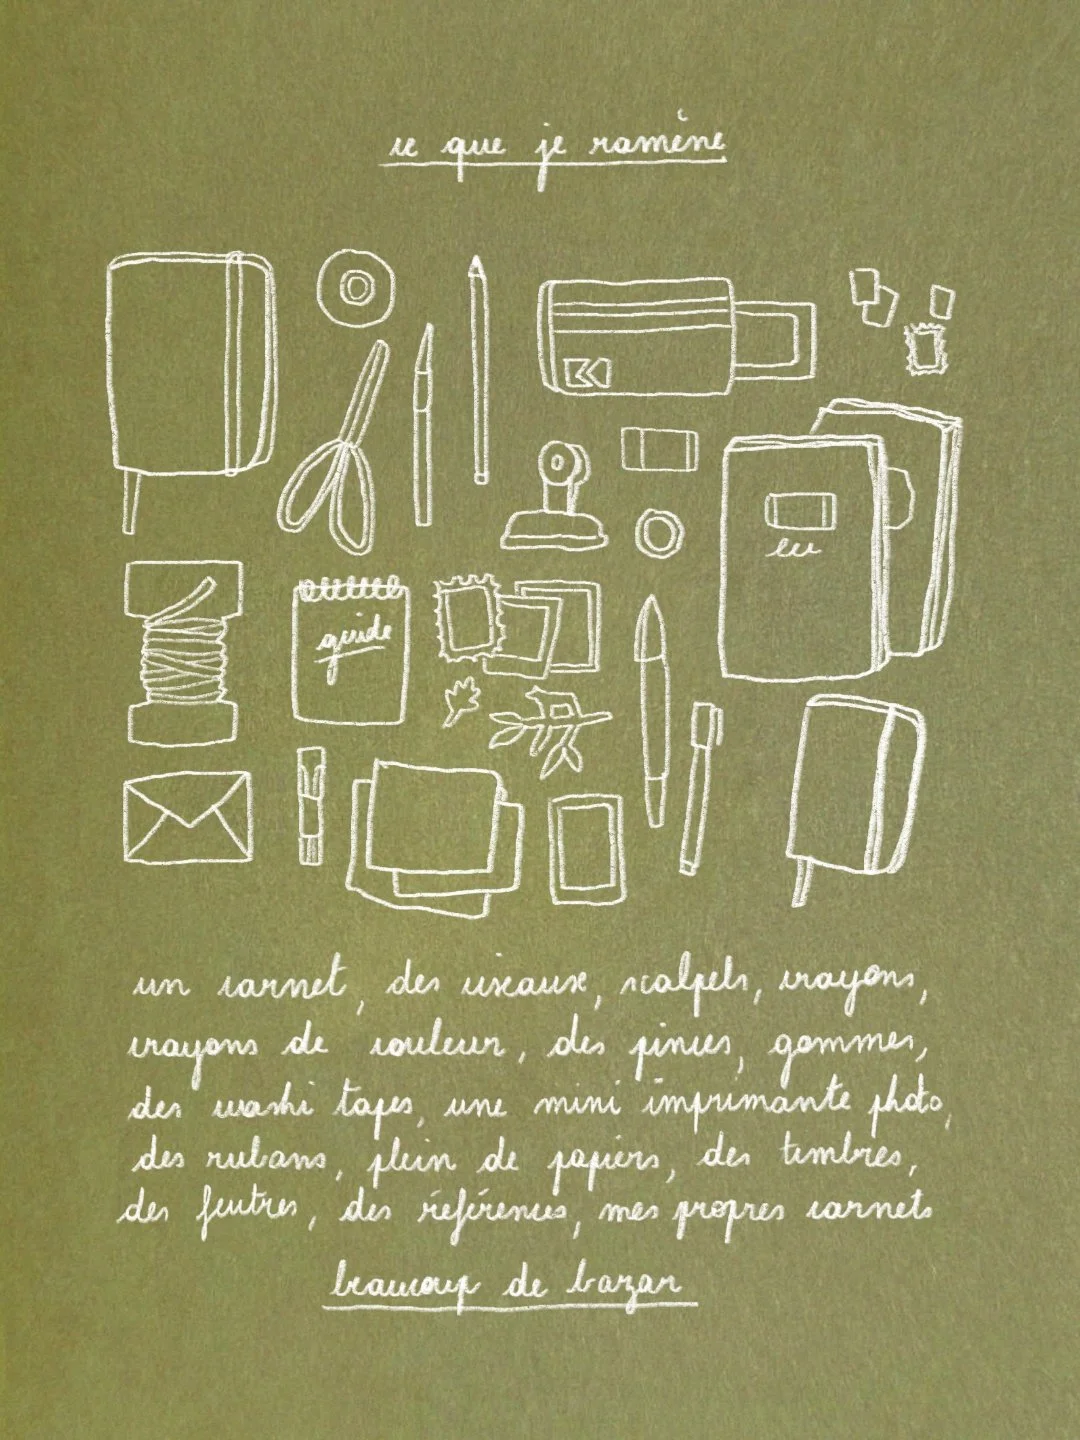 ce que je ramène
eu
guide
un carnet, des ciseaux, scalpels, crayons,
crayons de couleur, des pinces, gommes,
des washi tapes, une mini imprimante photo,
des rubans, plein de papiers, des timbres,
des feutres, des références, mes propres carnets
beaucoup de bazar